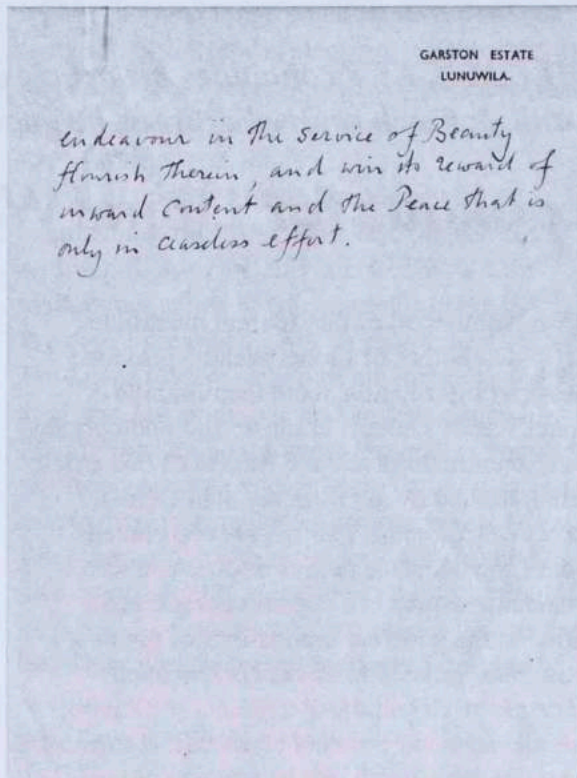 GARSTON ESTATE
LUNUWILA.
endeavour in the service of Beauty
flourish therein, and win its reward of
inward content and the Peace that is
only in ceaseless effort.